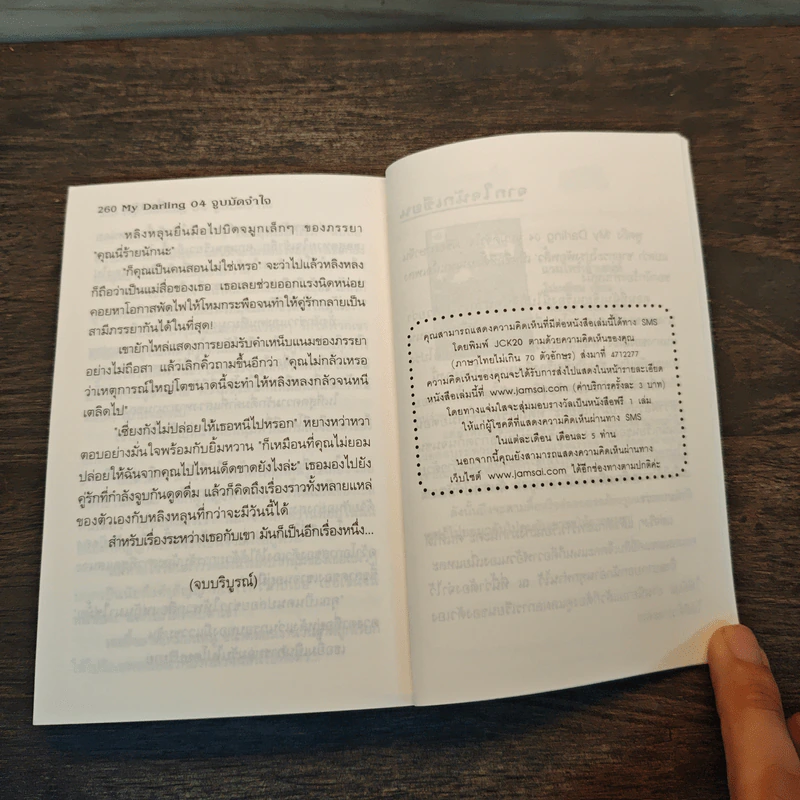 260 My Darling 04 จูบมัดจำใจ
หลิงหลุนยื่นมือไปบิดจมูกเล็กๆ ของภรรยา
"คุณนี่ร้ายนักนะ"
"ก็คุณเป็นคนสอนไม่ใช่เหรอ" จะว่าไปแล้วหลิงหลง
ก็ถือว่าเป็นแม่สื่อของเธอ เธอเลยช่วยออกแรงนิดหน่อย
คอยหาโอกาสพัดไฟให้โหมกระพือจนทำให้คู่รักกลายเป็น
สามีภรรยากันได้ในที่สุด!
เขายักไหล่แสดงการยอมรับคำเหน็บแนมของภรรยา
อย่างไม่ถือสา แล้วเลิกคิ้วถามขึ้นอีกว่า "คุณไม่กลัวเหรอ
ว่าเหตุการณ์ใหญ่โตขนาดนี้จะทำให้หลิงหลงกลัวจนหนี
เตลิดไป"
"เซี่ยงกังไม่ปล่อยให้เธอหนีไปหรอก" หยางหว่าหวา
ตอบอย่างมั่นใจพร้อมกับยิ้มหวาน "ก็เหมือนที่คุณไม่ยอม
ปล่อยให้ฉันจากคุณไปไหนเด็ดขาดยังไงล่ะ" เธอมองไปยัง
คู่รักที่กำลังจูบกันดูดดื่ม แล้วก็คิดถึงเรื่องราวทั้งหลายแหล่
ของตัวเองกับหลิงหลุนที่กว่าจะมีวันนี้ได้
สำหรับเรื่องระหว่างเธอกับเขา มันก็เป็นอีกเรื่องหนึ่ง...
(จบบริบูรณ์)
คุณสามารถแสดงความคิดเห็นที่มีต่อหนังสือเล่มนี้ได้ทาง SMS
โดยพิมพ์ JCK20 ตามด้วยความคิดเห็นของคุณ
(ภาษาไทยไม่เกิน 70 ตัวอักษร) ส่งมาที่ 4712277
ความคิดเห็นของคุณจะได้รับการส่งไปแสดงในหน้ารายละเอียด
หนังสือเล่มนี้ที่ www.jamsai.com (ค่าบริการครั้งละ 3 บาท)
โดยทางแจ่มใสจะสุ่มมอบรางวัลเป็นหนังสือฟรี 1 เล่ม
ให้แก่ผู้โชคดีที่แสดงความคิดเห็นผ่านทาง SMS
ในแต่ละเดือน เดือนละ 5 ท่าน
นอกจากนี้คุณยังสามารถแสดงความคิดเห็นผ่านทาง
เว็บไซต์ www.jamsai.com ได้อีกช่องทางตามปกติค่ะ